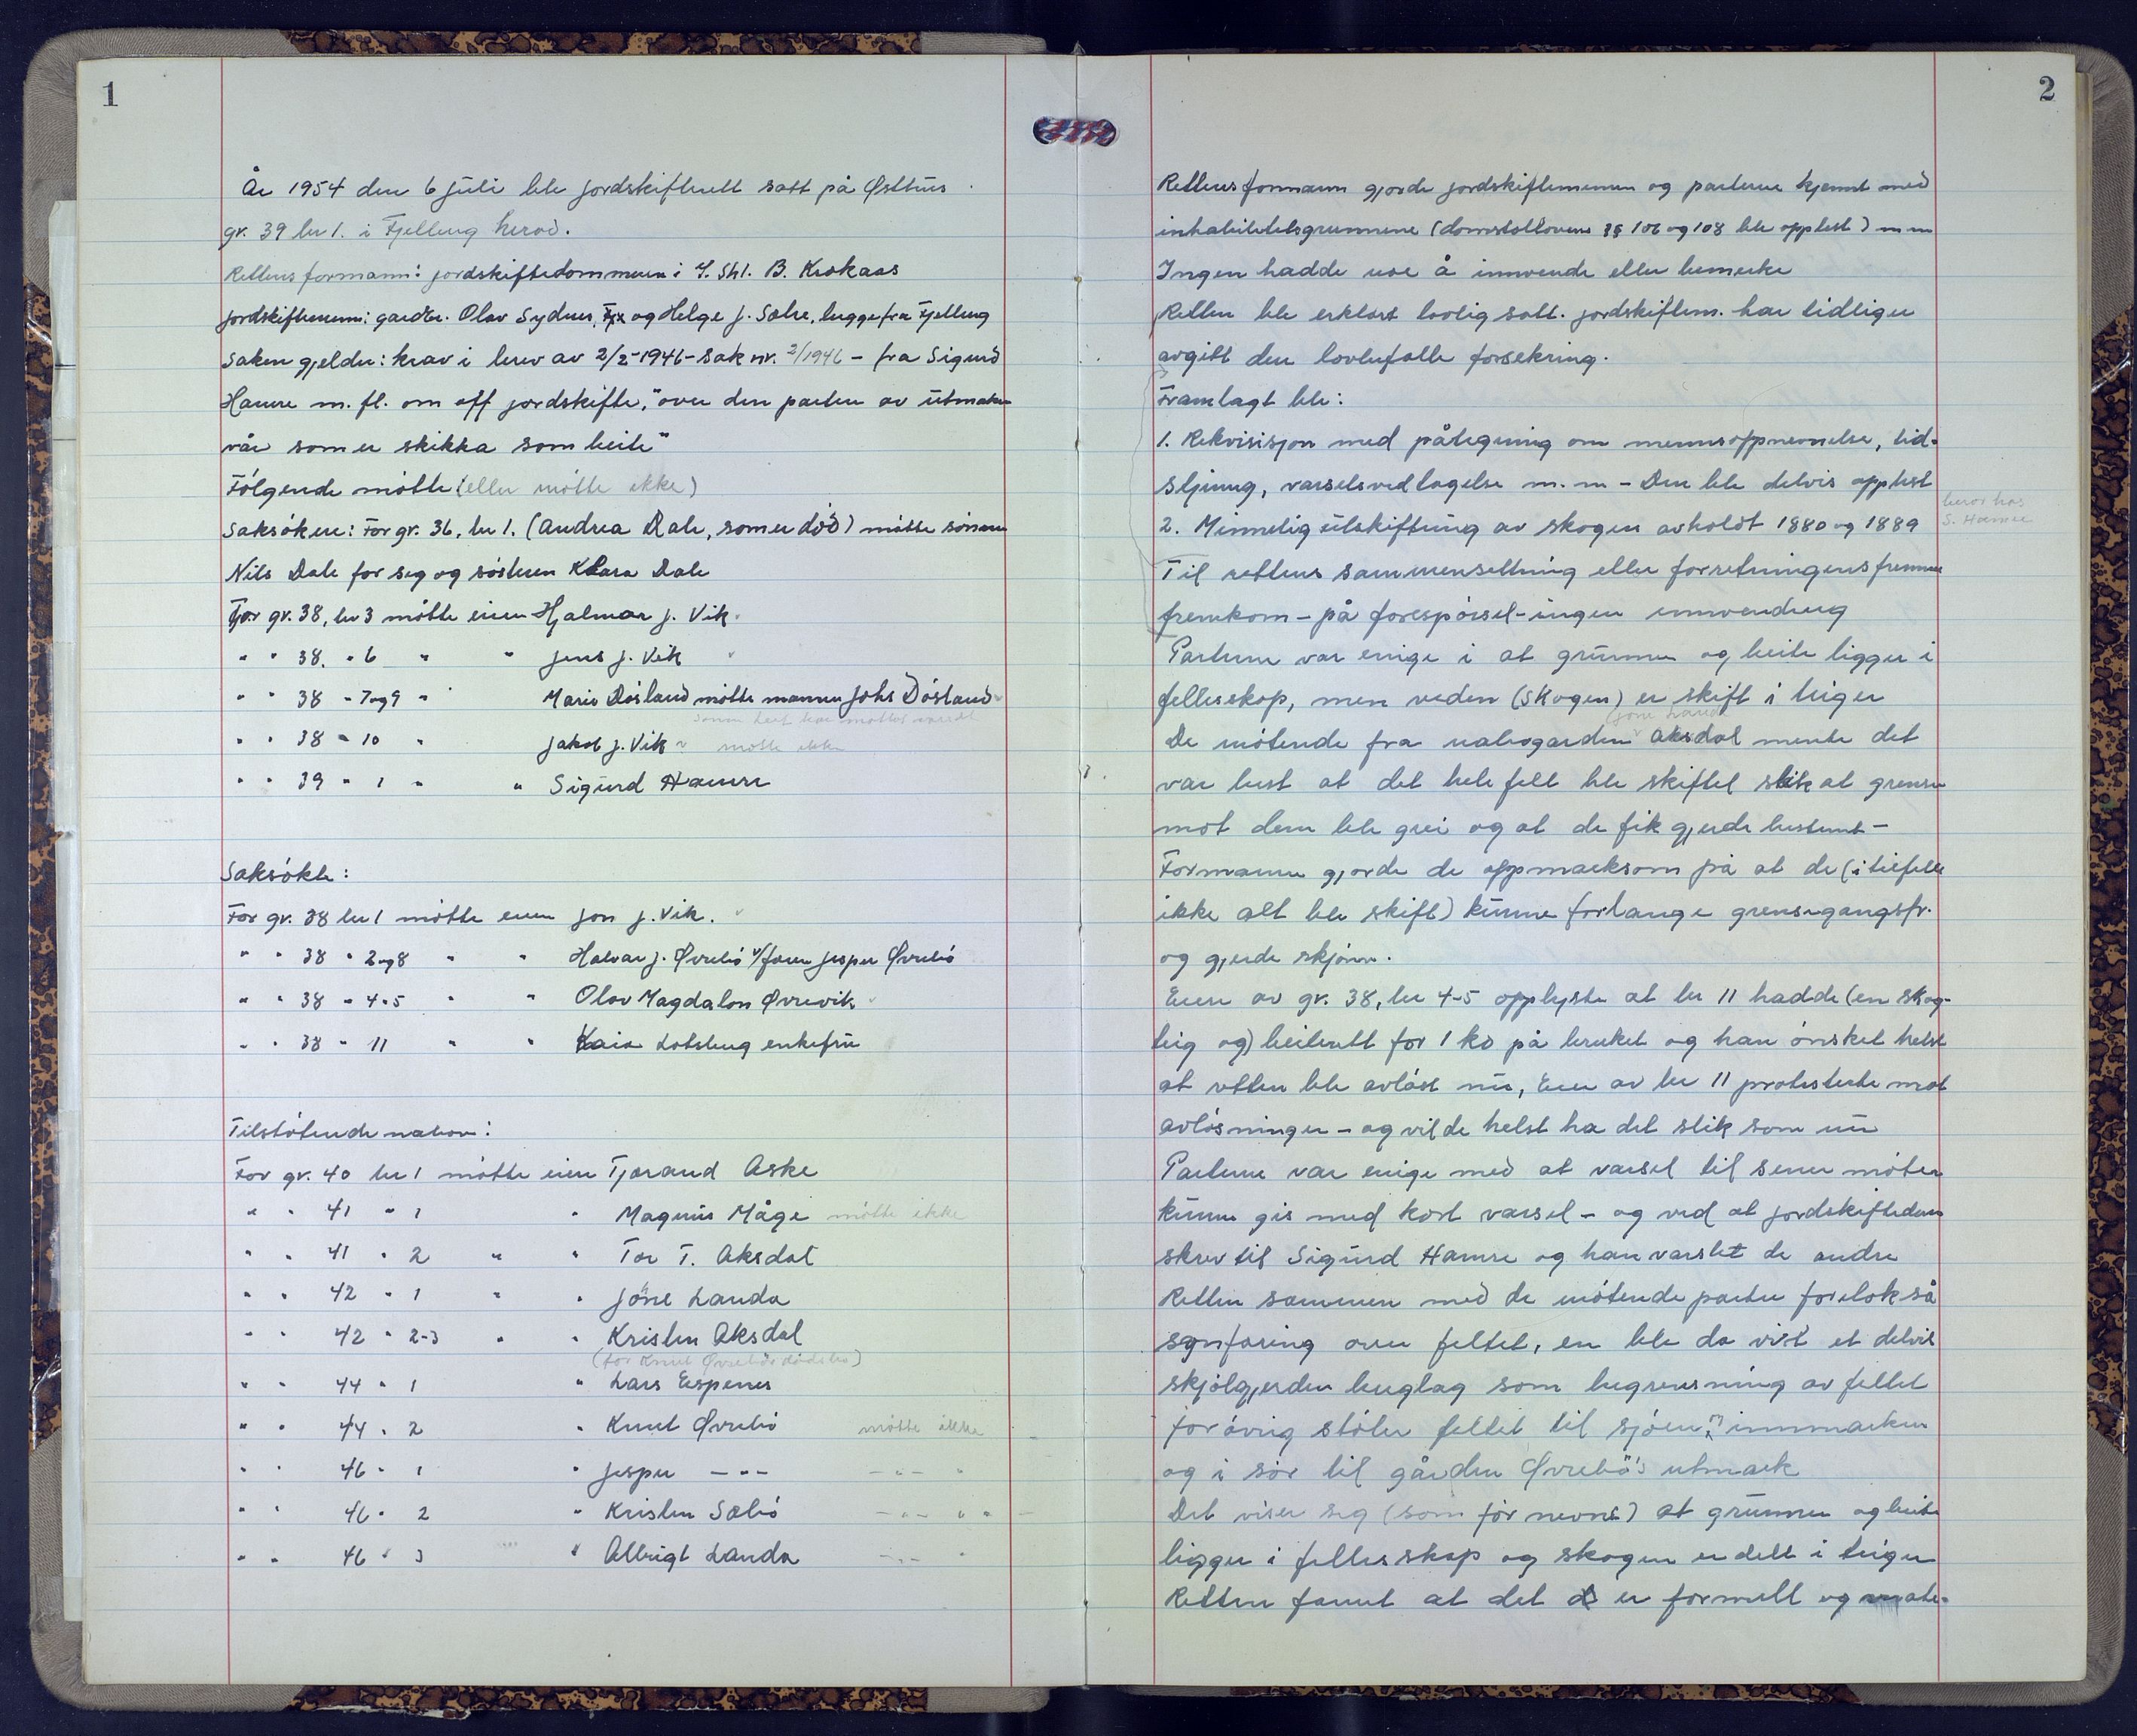 1
År 1954 den 6 juli ble jordskifterett satt på Østhus
gr. 39 br 1. i Fjelberg herad.
Rettens formann: jordskiftedommeren i Y. Shl. B. Krokaas
jordskiftemenn: gardbr. Olav Sydnes, og Helge J. Sælse, begge fra Fjelberg
Saken gjelder: krav i brev av 2/2-1946 - sak nr. 2/1946 - fra Sigurd
Hamre m. fl. om off jordskifte, "over den parten av utmarken
vår som er skikka som beite"
Følgende møtte (eller møtte ikke)
Saksøkere: For gr. 36, br 1. (Andrea Dale, som er død) møtte sønnen
Nils Dale for seg og søsteren Klara Dale
For gr. 38, br 3 møtte eieren Hjalmar J. Vik
" " 38. " 6 " " Jens J. Vik
" " 38 " 7 og 9 " " Marie Døsland møtte mannen Johs Døsland
" " 38 " 10 " Jakob J. Vik møtte ikke
" " 39 " 1 " " Sigurd Hamre
Saksøkte:
For gr. 38 br 1 møtte eieren Jon J. Vik.
" " 38 " 2 og 8 " " Halvar J. Øvrebø v/faren Jesper Øvrebø
" " 38 " 4 " 5 " " Olav Magdalon Øvrevik
" " 38 " 11 " " Kaia Lotsberg enkefru
Tilstøtende naboer:
For gr. 40 br 1 møtte eieren Tjerand Aske
" " 41 " 1 " Magnus Måge møtte ikke
" " 41 " 2 " " Tor T. Aksdal
" " 42 " 1 " " Jone Landa
" " 42 " 2-3 " " Kristen Aksdal
(for Knut Øvrebøs dødsbo)
" " 44 " 1 " Lars Espenes
" " 44 " 2 " Knut Øvrebø møtte ikke
" " 46 " 1 " Jesper -"- -"- "
" " 46 " 2 " Kristen Sæbø -"- " "
" " 46 " 3 " Albrigt Landa -"- "
2
Rettens formann gjorde jordskiftemennene og partene kjennt med
inhabilitetsgrunnene (domstollovens §§ 106 og 108 ble opplest) m m
Ingen hadde noe å innvende eller bemerke
Retten ble erklært lovlig satt. jordskiftem. har tidligere
avgitt den lovbefalte forsikring.
Framlagt ble:
1. Rekvisisjon med påtegning om mennsoppnevnelse, tid-
setjing, varselsvedtagelse m. m - Den ble delvis opplest
2. Minnelig utskiftning av skogen avholdt 1880 og 1889
beror hos
S. Hamre
Til rettens sammensetning eller forretningens fremme
fremkom - på forespørsel - ingen innvending
Partene var enige i at grunnen og beite ligger i
fellesskap, men veden (skogen) er skift i teiger
(Jone Landa)
De møtende fra nabogarden Aksdal mente det
var best at det hele felt ble skiftet slik at grensen
mot dem ble grei og at de fik gjerde bestemt -
Formannen gjorde de oppmerksom på at de (i tilfelle
ikke alt ble skift) kunne forlange grensegangsfr.
og gjerde skjønn.
Eieren av gr. 38, br 4-5 opplyste at br 11 hadde (en skog-
teig og) beiterett for 1 ko på bruket og han ønsket helst
at retten ble avløst nu, Eier av br 11 protesterte mot
avløsningen - og vilde helst ha det slik som nu
Partene var enige med at varsel til senere møter
kunne gis med kort varsel - og ved at jordskiftedom
skrev til Sigurd Hamre og han varslet de andre
Retten sammen med de møtende parter foretok så
synfaring over feltet, en ble da vist et delvis
skjølgjerden beuglag som begrensning av feltet
for øvrig støter feltet til sjøen, innmarken
og i sør til gården Øvrebø's utmark
Det viser seg (som før nevnt) at grunnen og beite
ligger i fellesskap og skogen er delt i teiger
Retten fannt at det er formelt og mate-